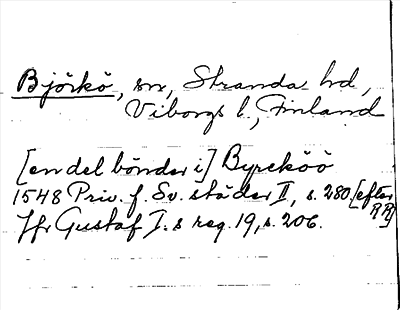 Björkö, sn, Stranda hd,
Viborgs l., Finland
[en del bönder i] Byreköö
1548 Priv. f. Sv. städer II, s. 280 [efter RR]
Jfr Gustaf I:s reg. 19, s. 206.